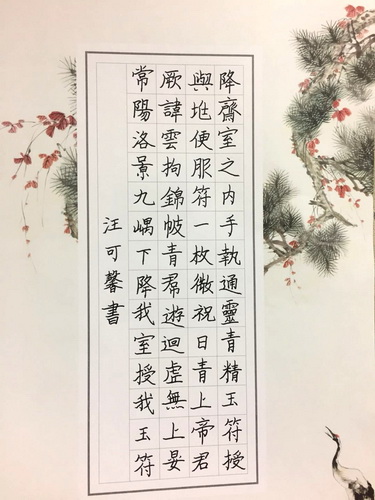 降齋室之内手執通靈青精玉符授
與兆便服符一枚微祝曰青上帝君
厥諱雲拘錦帔青帬遊迴虛無上晏
常陽洛景九嵎下降我室授我玉符
汪可馨書